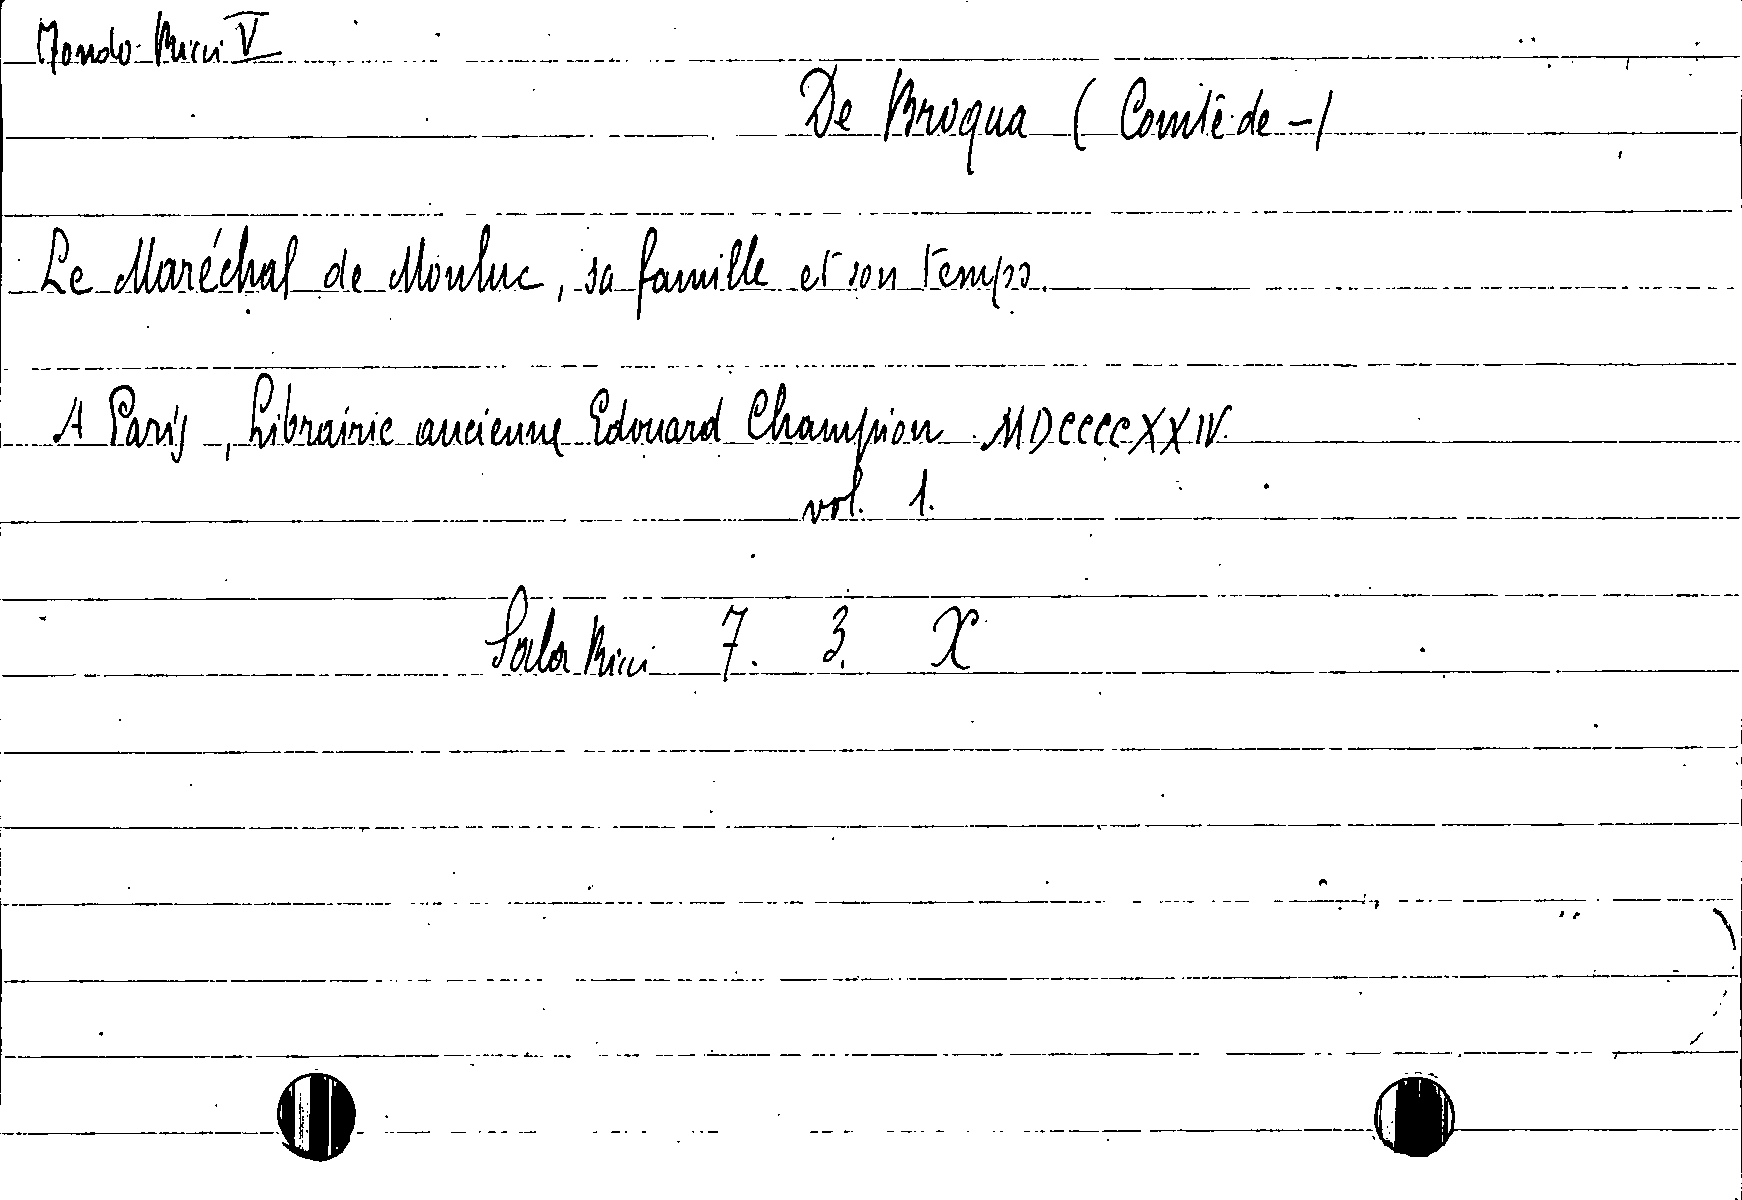 Fondo Ricci V
De Broqua (Comte de -)
Le Maréchal de Monluc, sa famille et son temps.
A Paris, Librairie ancienne Edouard Champion MDCCCCXXIV.
vol. 1.
Sala Ricci 7. 3. X